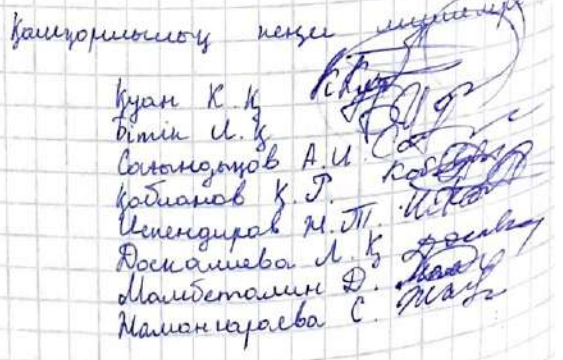 Қамқоршылық кеңес мүшелері
Қуан К. Қ
Бітік И. Қ
Сағындықов А. И
Қобланов Қ. Г.
Искендиров Ж. Т.
Доскалиева Л. Қ
Мамбеталин Д.
Жамангараева С.